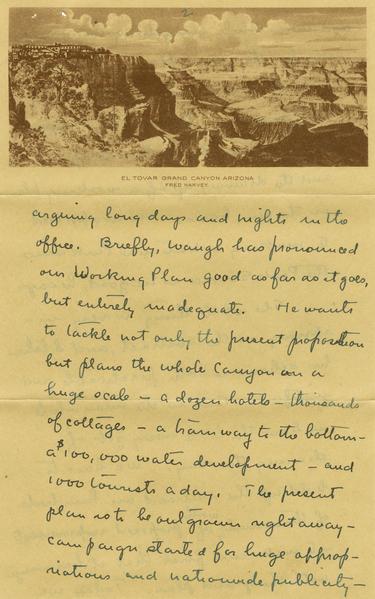 2
EL TOVAR GRAND CANYON ARIZONA
FRED HARVEY
arguing long days and nights in the
office. Briefly, Waugh has pronounced
our Working Plan good as far as it goes,
but entirely inadequate. He wants
to tackle not only the present proposition
but plans the whole Canyon on a
huge scale - a dozen hotels - thousands
of cottages - a tramway to the bottom -
a $100,000 water development - and
1000 tourists a day. The present
plan not to be outgrown right away -
campaign started for huge approp-
riations and nationwide publicity -